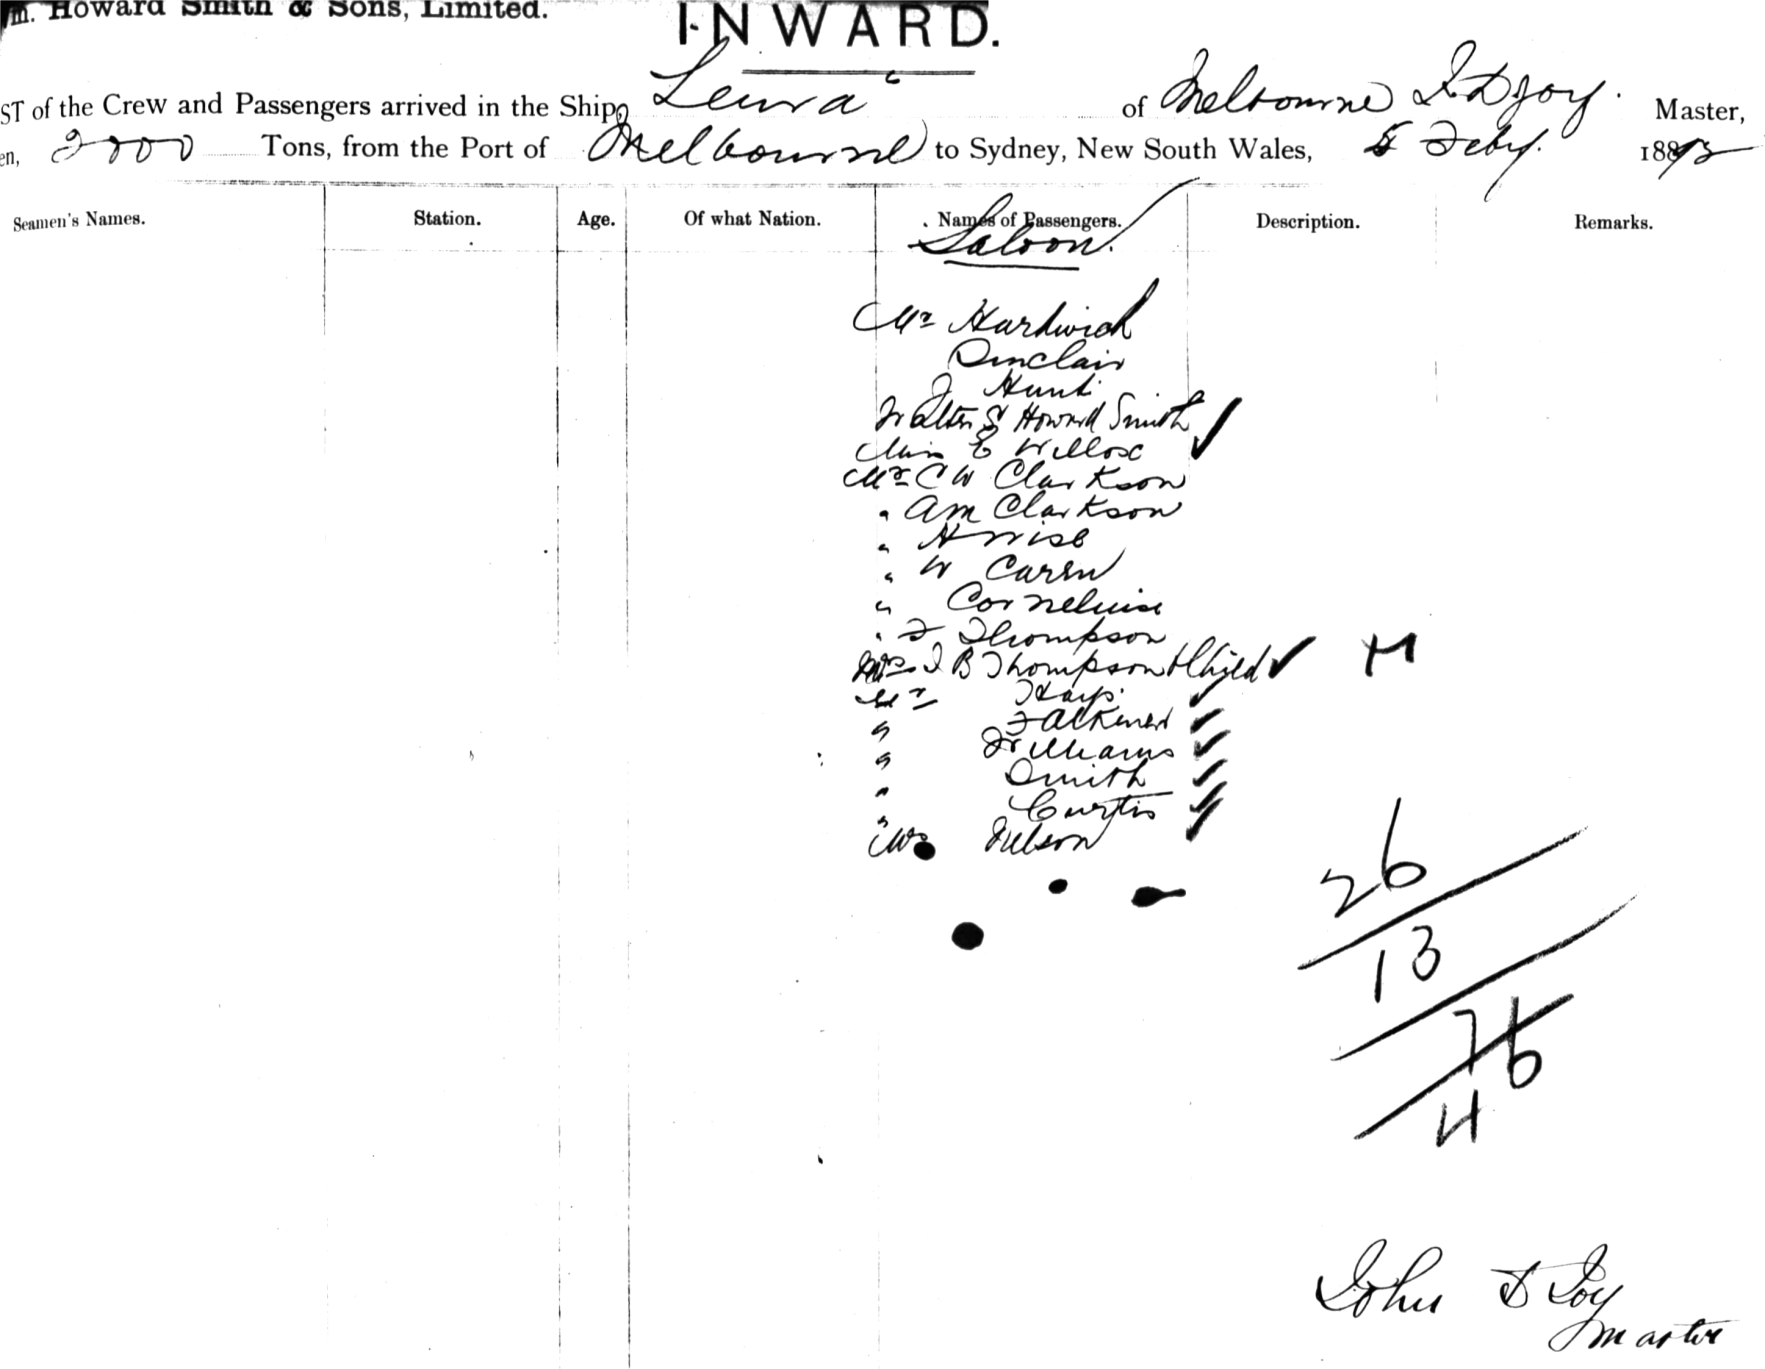 m. Howard Smith & Sons, Limited.
INWARD.
ST of the Crew and Passengers arrived in the Ship, Leura of Melbourne J D Joy. Master,
en, 2000 Tons, from the Port of Melbourne to Sydney, New South Wales, 5 Feby. 1893
Seamen's Names. Station. Age. Of what Nation. Names of Passengers. Description. Remarks.
Saloon.
Mr Hardwick
Sinclair
J Hunt
Walter S Howard Smith
Miss E Willox
Mr C W Clarkson
" A M Clarkson
" H Wise
" W Caren
" Cornelius
" F Thompson
Mrs J B Thompson + Child
Mr Hays
" Falkiner
" Williams
" Smith
" Curtis
Nelson
26
13
76
4
John D Joy
Master